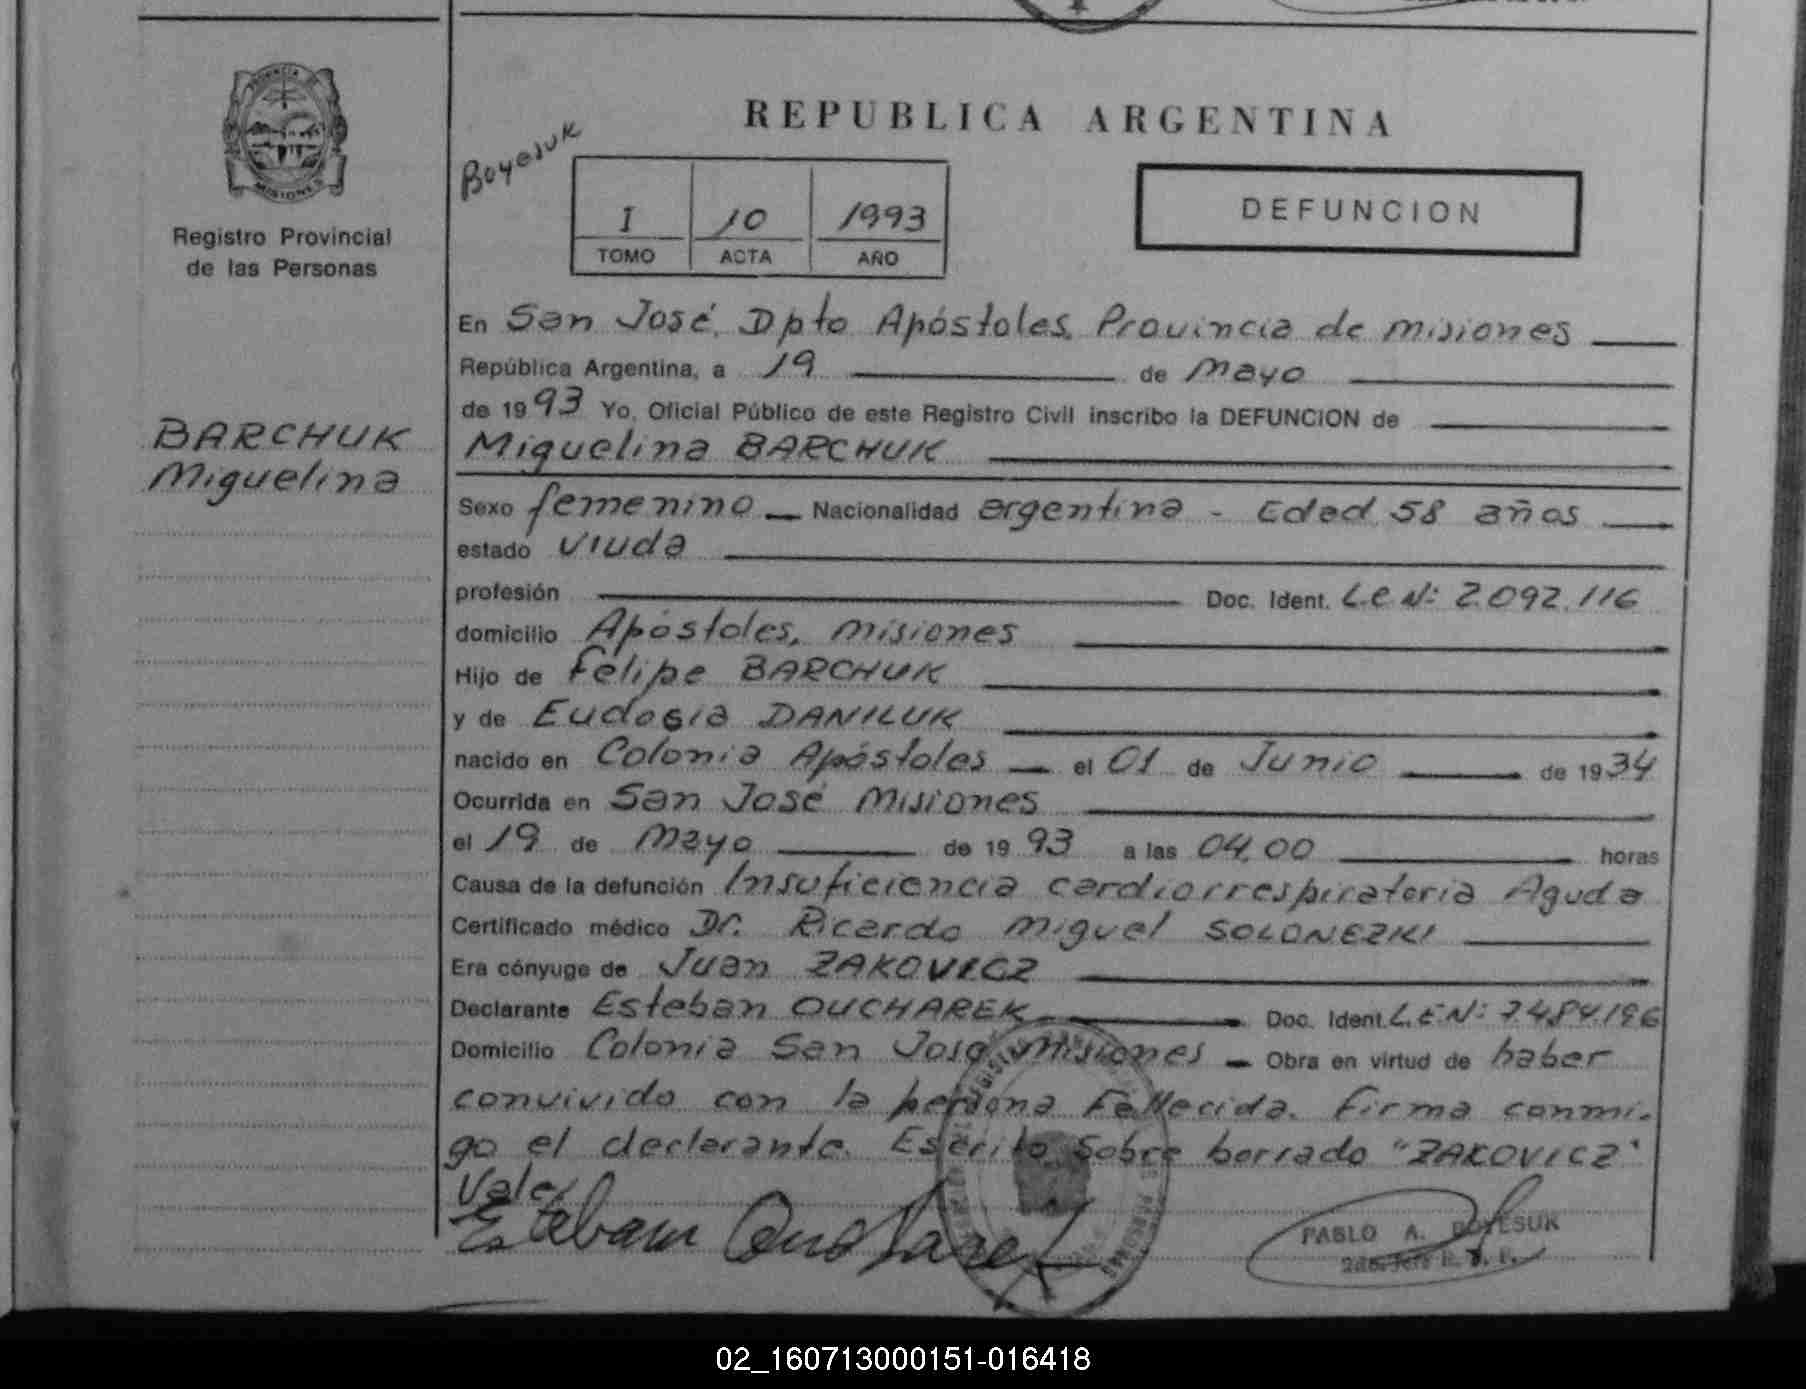 PROVINCIA DE
MISIONES
Registro Provincial
de las Personas
BARCHUK
Miguelina
REPUBLICA ARGENTINA
Boyesuk
I 10 1993
TOMO ACTA AÑO
DEFUNCION
En San José, Dpto Apóstoles, Provincia de misiones
República Argentina, a 19 de mayo
de 1993 Yo, Oficial Público de este Registro Civil inscribo la DEFUNCION de
Miguelina BARCHUK
Sexo femenino Nacionalidad argentina - Edad 58 años
estado viuda
profesión Doc. Ident. L.C Nº: 2.092.116
domicilio Apóstoles, misiones
Hijo de Felipe BARCHUK
y de Eudosia DANILUK
nacido en Colonia Apóstoles el 01 de Junio de 1934
Ocurrida en San José Misiones
el 19 de mayo de 1993 a las 04,00 horas
Causa de la defunción Insuficiencia cardiorrespiratoria Aguda
Certificado médico Dr. Ricardo Miguel SOLONEZKI
Era cónyuge de Juan ZAKOVICZ
Declarante Esteban OUCHAREK Doc. Ident. L.E.Nº: 7.484.196
Domicilio Colonia San José, Misiones Obra en virtud de haber
convivido con la persona Fallecida. Firma conmi-
go el declarante. Escrito sobre borrado "ZAKOVICZ"
Vale/
Esteban
PABLO A. BOYESUK
02_160713000151-016418